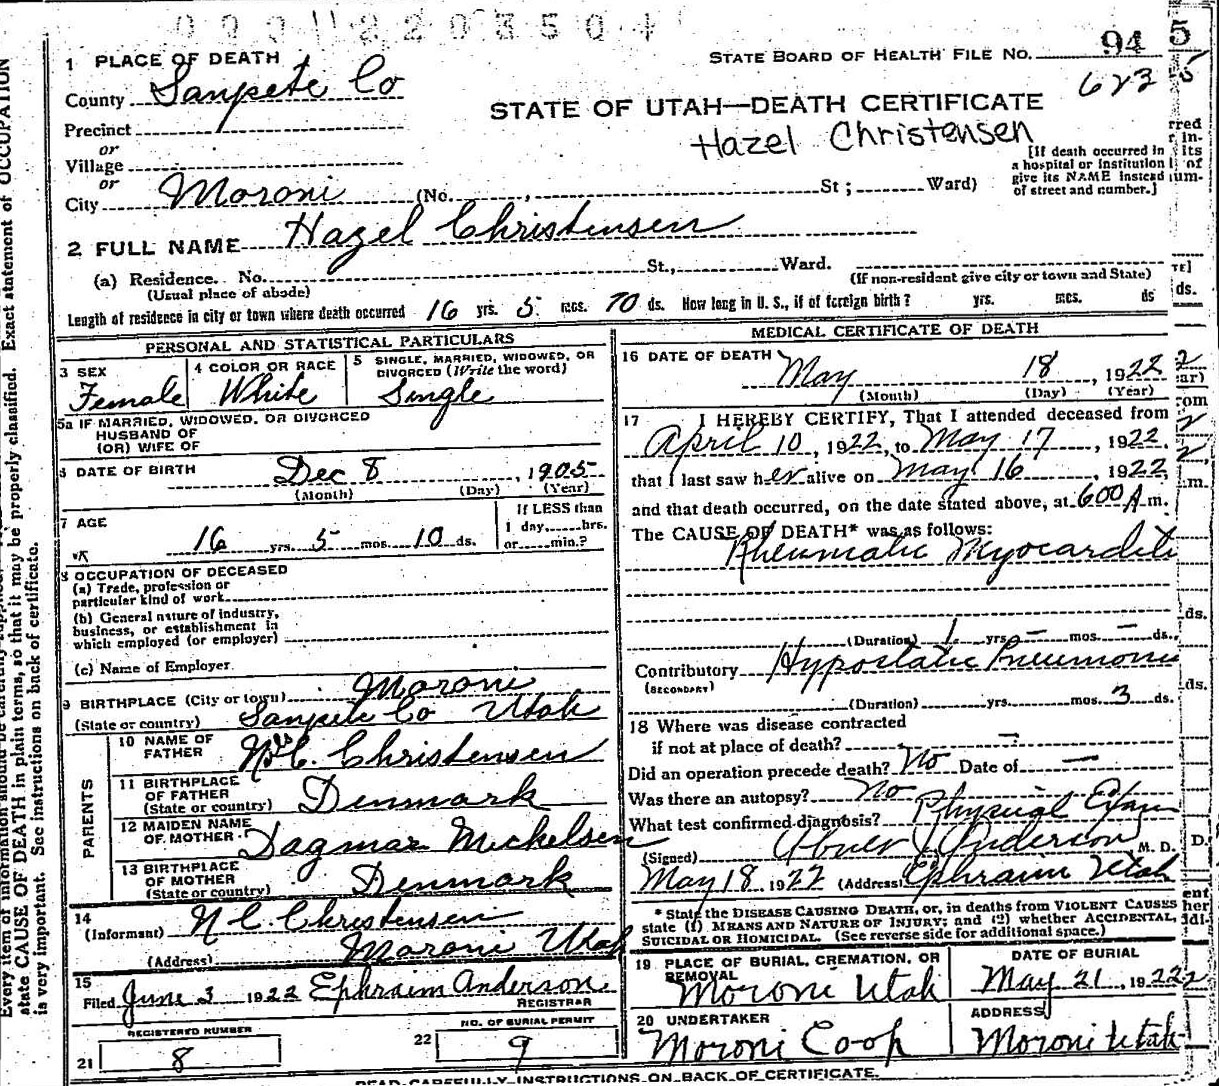 STATE BOARD OF HEALTH FILE NO. 94
623
1 PLACE OF DEATH
County Sanpete Co
STATE OF UTAH—DEATH CERTIFICATE
Hazel Christensen
Precinct
or
Village
or
City Moroni (No. , St ; Ward)
[If death occurred in
a hospital or institution
give its NAME instead
of street and number.]
2 FULL NAME Hazel Christensen
(a) Residence. No. St., Ward.
(Usual place of abode)
(If non-resident give city or town and State)
Length of residence in city or town where death occurred 16 yrs. 5 mos. 10 ds. How long in U. S., if of foreign birth? yrs. mos. ds
PERSONAL AND STATISTICAL PARTICULARS
3 SEX
Female
4 COLOR OR RACE
White
5 SINGLE, MARRIED, WIDOWED, OR
DIVORCED (Write the word)
Single
5a IF MARRIED, WIDOWED, OR DIVORCED
HUSBAND OF
(OR) WIFE OF
6 DATE OF BIRTH Dec 8, 1905
(Month) (Day) (Year)
7 AGE
16 yrs. 5 mos. 10 ds.
If LESS than
1 day, hrs.
or min.?
8 OCCUPATION OF DECEASED
(a) Trade, profession or
particular kind of work
(b) General nature of industry,
business, or establishment in
which employed (or employer)
(c) Name of Employer
9 BIRTHPLACE (City or town) Moroni
(State or country) Sanpete Co Utah
PARENTS
10 NAME OF
FATHER N. C. Christensen
11 BIRTHPLACE
OF FATHER
(State or country) Denmark
12 MAIDEN NAME
OF MOTHER Dagmar Mickelsen
13 BIRTHPLACE
OF MOTHER
(State or country) Denmark
14
(Informant) N C Christensen
(Address) Moroni Utah
15
Filed June 3 1922 Ephraim Anderson
REGISTRAR
REGISTERED NUMBER
21 8
NO. OF BURIAL PERMIT
22 9
MEDICAL CERTIFICATE OF DEATH
16 DATE OF DEATH
May 18, 1922
(Month) (Day) (Year)
17 I HEREBY CERTIFY, That I attended deceased from
April 10, 1922, to May 17, 1922,
that I last saw her alive on May 16, 1922,
and that death occurred, on the date stated above, at 600 A.m.
The CAUSE OF DEATH* was as follows:
Rheumatic Myocardit
(Duration) 1 yrs. – mos. – ds.
Contributory Hypostatic Pneumoni
(SECONDARY)
(Duration) yrs. mos. 3 ds.
18 Where was disease contracted
if not at place of death? –
Did an operation precede death? No Date of —
Was there an autopsy? No
What test confirmed diagnosis? Physical Exam
(Signed) Abner J Anderson M. D.
May 18 1922 (Address) Ephraim Utah
* State the DISEASE CAUSING DEATH, or, in deaths from VIOLENT CAUSES
state (1) MEANS AND NATURE OF INJURY; and (2) whether ACCIDENTAL,
SUICIDAL OR HOMICIDAL. (See reverse side for additional space.)
19 PLACE OF BURIAL, CREMATION, OR
REMOVAL
Moroni Utah
DATE OF BURIAL
May 21, 1922
20 UNDERTAKER
Moroni Coop
ADDRESS
Moroni Utah
READ CAREFULLY INSTRUCTIONS ON BACK OF CERTIFICATE.
state CAUSE OF DEATH in plain terms, so that it may be properly classified. Exact statement of OCCUPATION
is very important. See instructions on back of certificate.